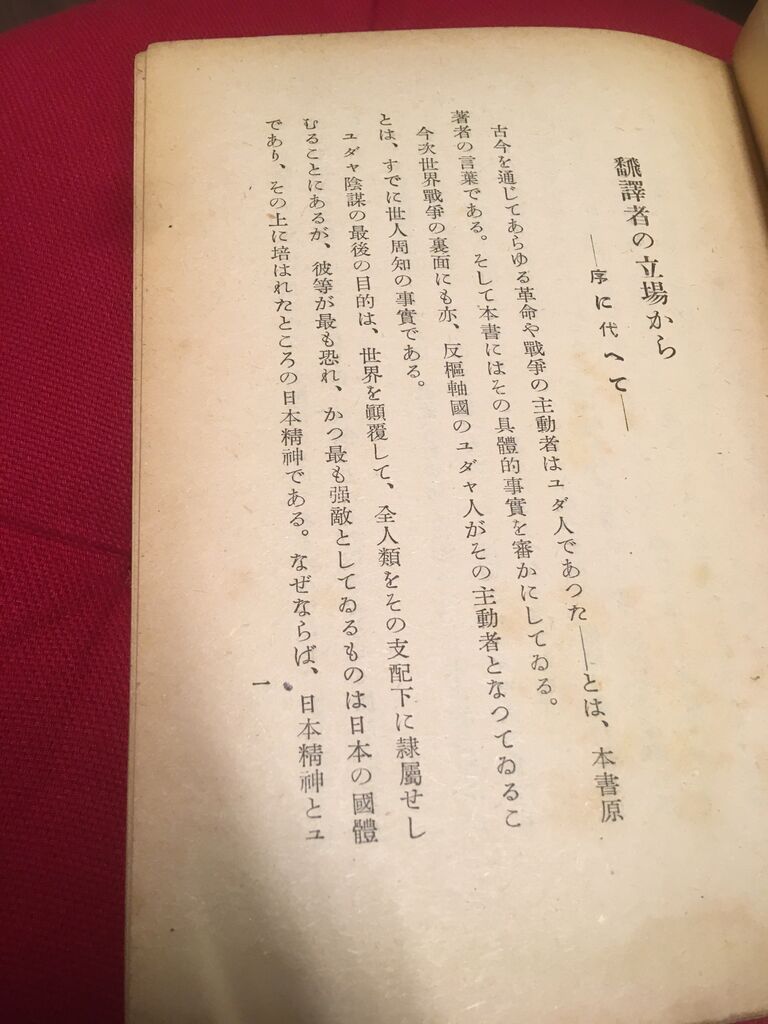 飜譯者の立場から
――序に代へて――
古今を通じてあらゆる革命や戰爭の主動者はユダ人であつた――とは、本書原
著者の言葉である。そして本書にはその具體的事實を審かにしてゐる。
今次世界戰爭の裏面にも亦、反樞軸國のユダヤ人がその主動者となつてゐるこ
とは、すでに世人周知の事實である。
ユダヤ陰謀の最後の目的は、世界を顚覆して、全人類をその支配下に隷屬せし
むることにあるが、彼等が最も恐れ、かつ最も强敵としてゐるものは日本の國體
であり、その上に培はれたところの日本精神である。なぜならば、日本精神とユ
一